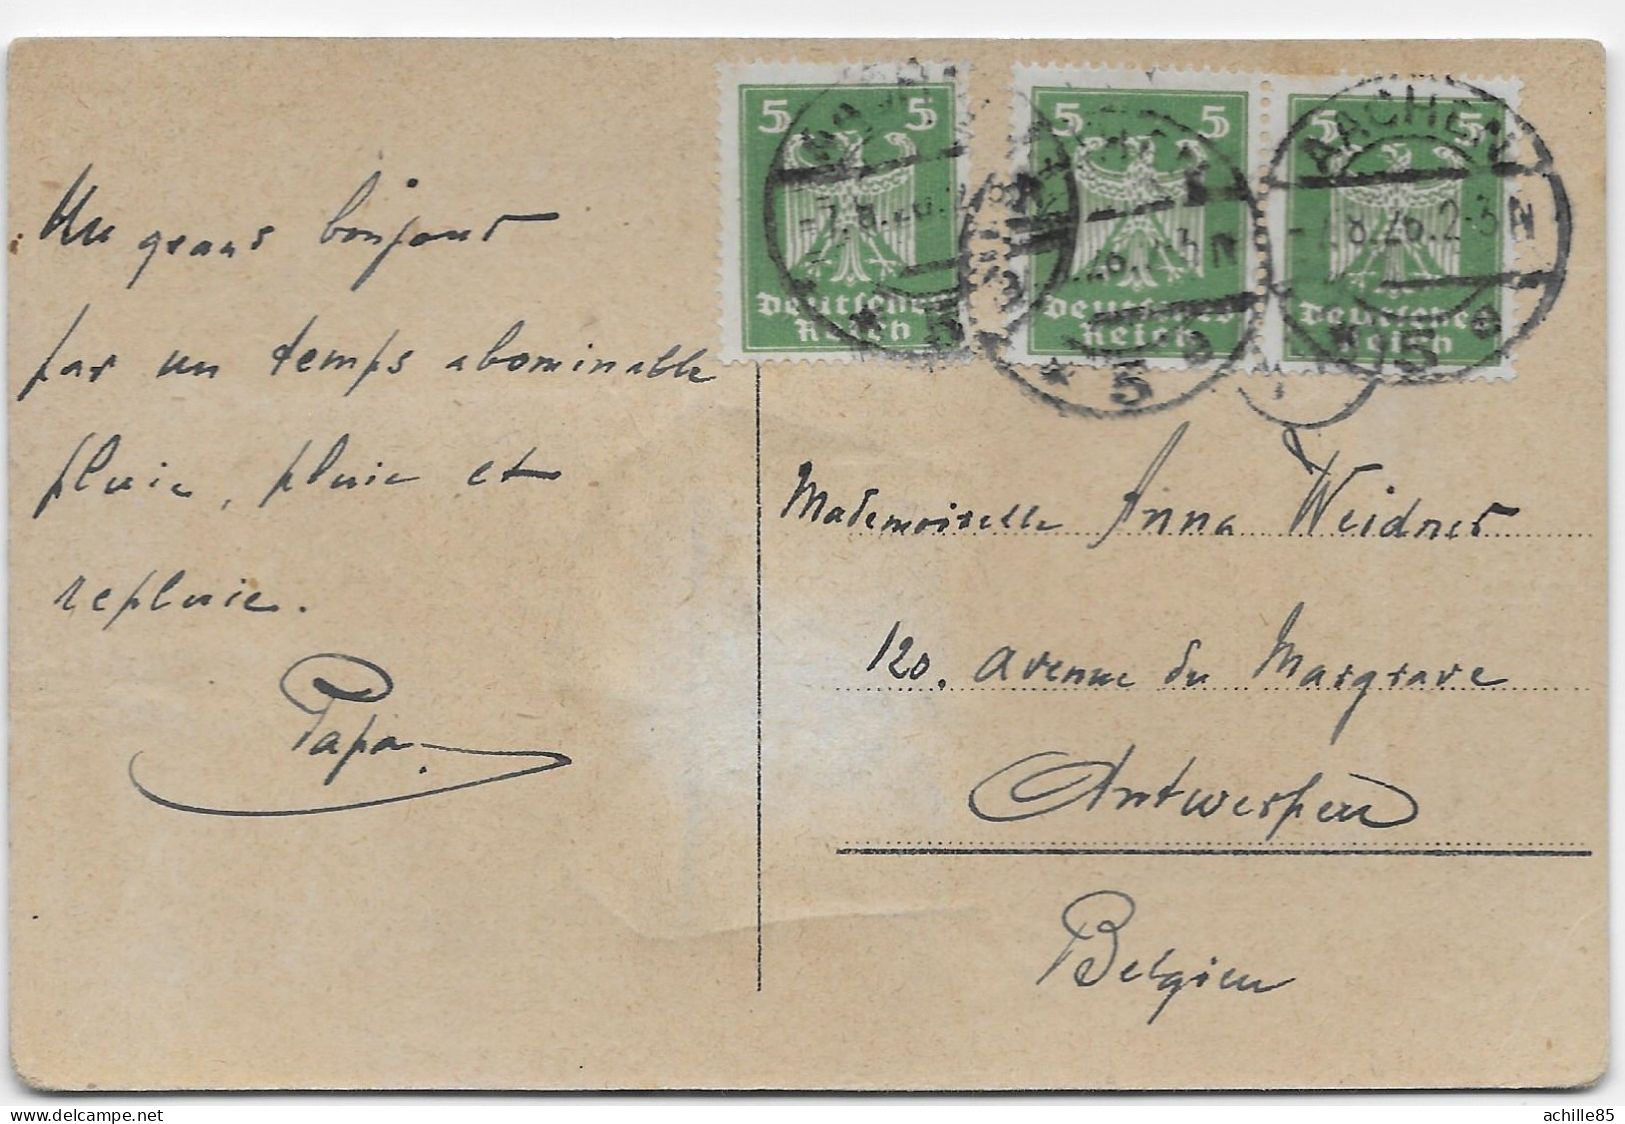 5 5
Deutsches
Reich
5 5
Deutsches
Reich
5 5
Deutsches
Reich
AACHEN
-7.8.26.2-3 N
* 5 e
Un grand bonjour
par un temps abominable
pluie, pluie et
repluie.
Papa
Mademoiselle Anna Weidner
120. Avenue du Margrave
Antwerpen
Belgien
achille85